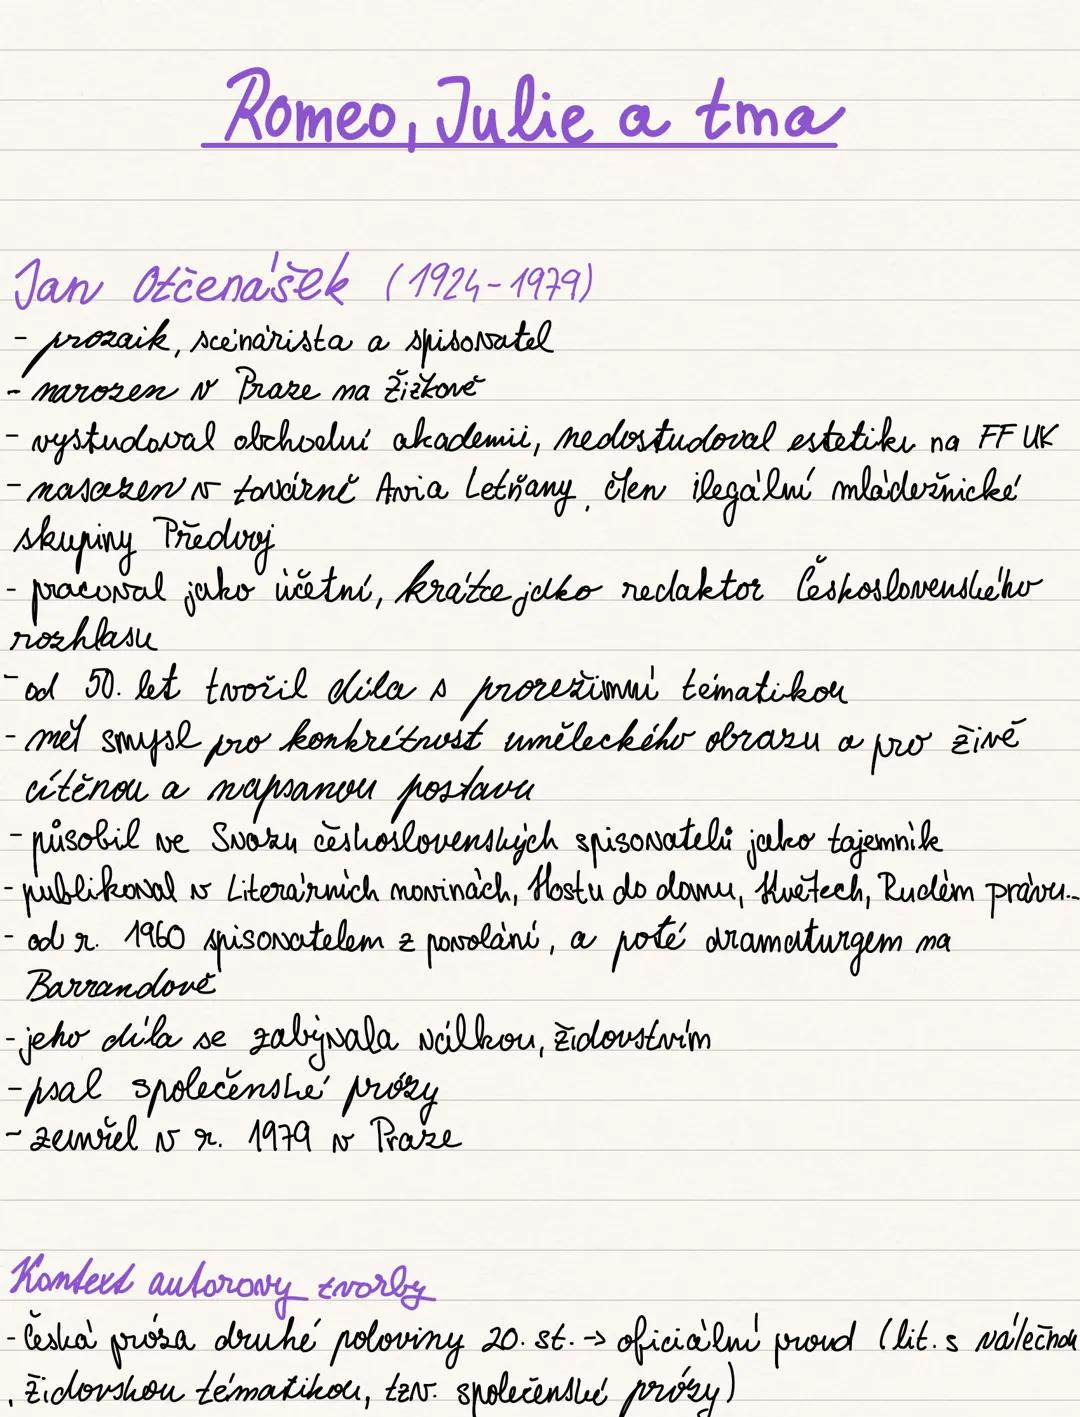 Romeo, Julie a tma
Jan Otčenášek (1924-1979)
- prozaik, scénárista a spisovatel
- narozen v Praze na Žižkově
- vystudoval obchodní akademii, nedostudoval estetiku na FF UK
- nasazen v továrně Avia Letňany, člen ilegální mládežnické
skupiny Předvoj
- pracoval jako účetní, krátce jako redaktor Československého
rozhlasu
- od 50. let tvořil díla s prorežimní tématikou
- měl smysl pro konkrétnost uměleckého obrazu a pro živě
cítěnou a napsanou postavu
- působil ve Svazu československých spisovatelů jako tajemník
- publikoval v Literárních novinách, Hostu do domu, Květech, Rudém právu...
- od r. 1960 spisovatelem z povolání, a poté dramaturgem na
Barrandově
- jeho díla se zabývala válkou, židovstvím
- psal společenské prózy
- zemřel v r. 1979 v Praze
Kontext autorovy tvorby
- Česká próza druhé poloviny 20. st. → oficiální proud (lit. s válečnou
, židovskou tématikou, tzv. společenské prózy)